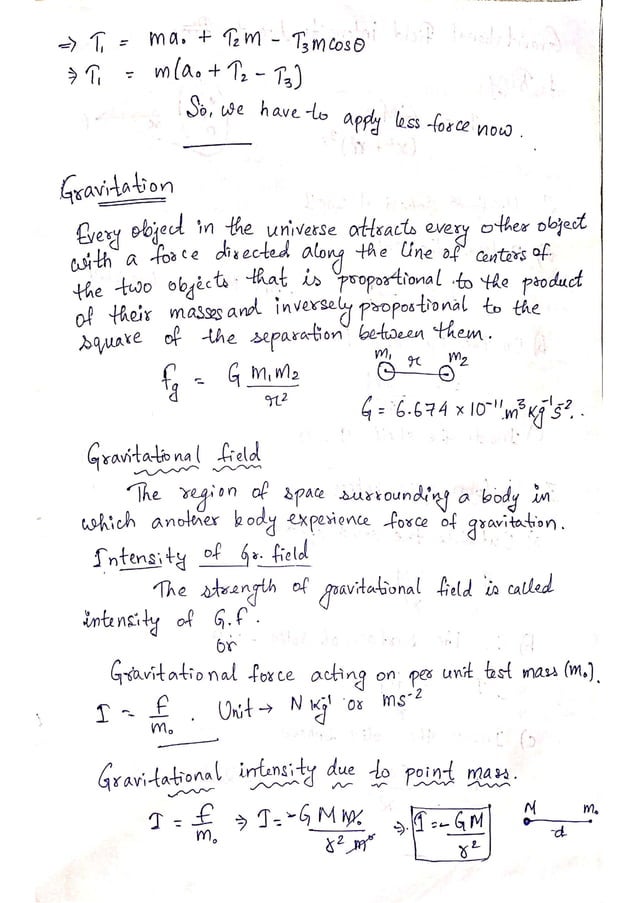 ⇒ T₁ = ma₀ + T₂m - T₃mcosθ
⇒ T₁ = m(a₀ + T₂ - T₃)
So, we have to apply less force now.
Gravitation
Every object in the universe attracts every other object
with a force directed along the line of centers of
the two objects that is proportional to the product
of their masses and inversely propostional to the
square of the separation between them.
f_g = G m₁m₂ / r²
m₁ r m₂
G = 6.674 × 10⁻¹¹ m³ kg⁻¹ s⁻².
Gravitational field
The region of space surrounding a body in
which another body experience force of gravitation.
Intensity of Gr. field
The strength of gravitational field is called
intensity of G.f.
or
Gravitational force acting on per unit test mass (m₀).
I = f/m₀ . Unit → N kg⁻¹ or ms⁻²
Gravitational intensity due to point mass.
I = f/m₀ ⇒ I = -G M m₀ / r² m₀ ⇒ I = -GM / r²
M m₀
d